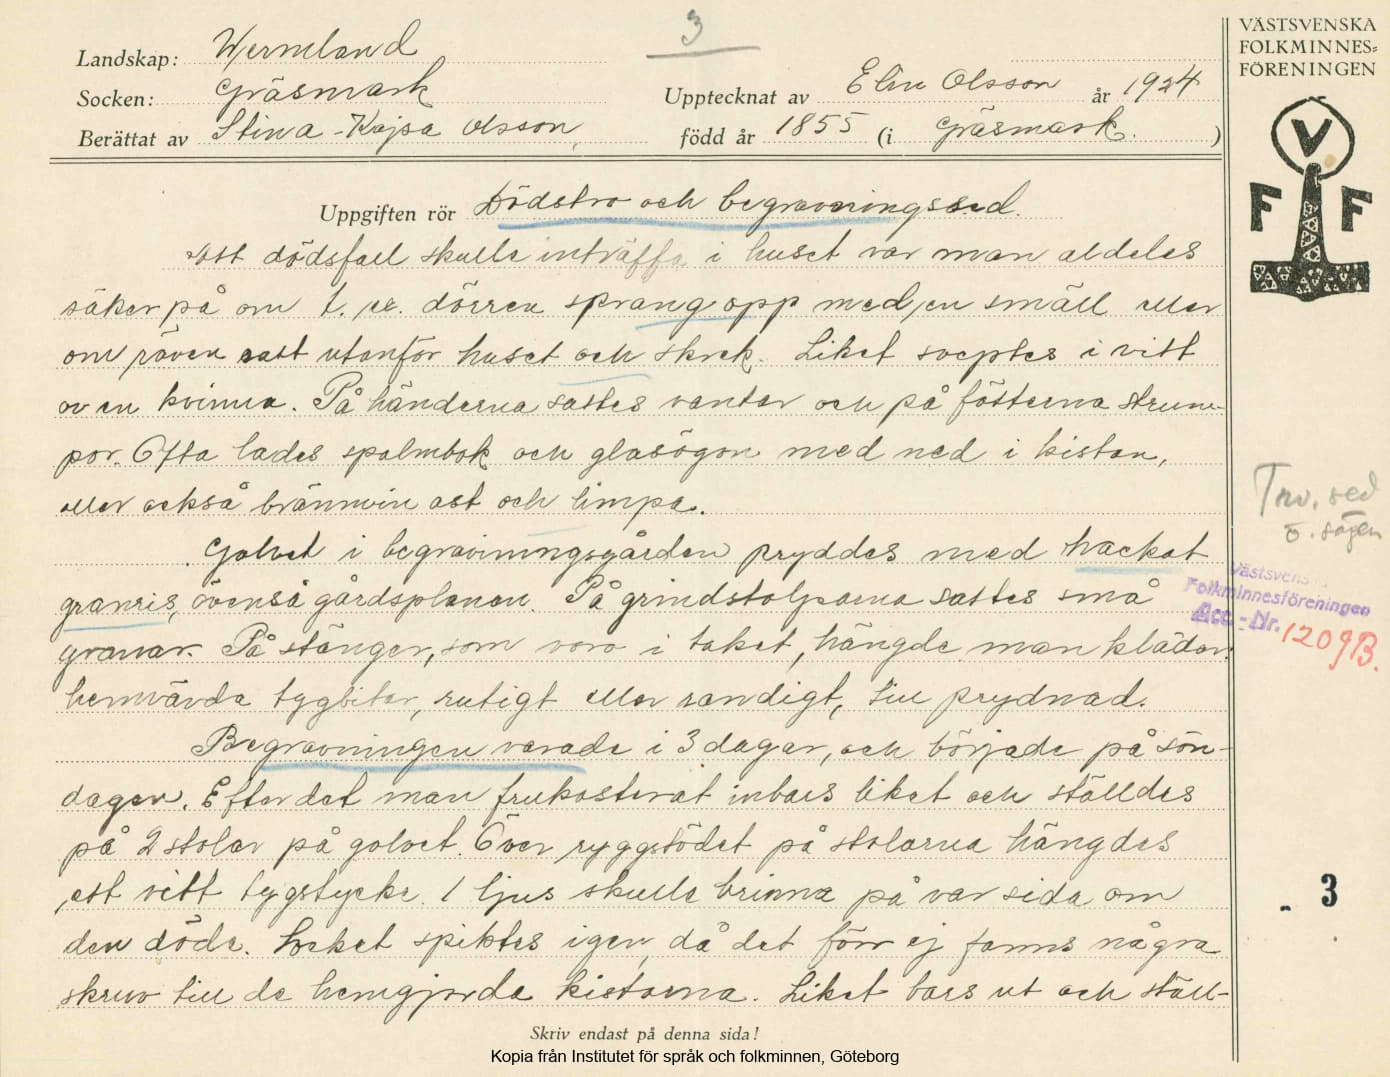 3
VÄSTSVENSKA
FOLKMINNES=
FÖRENINGEN
Landskap: Wermland
Socken: Gräsmark
Upptecknat av Elin Olsson år 1924
Berättat av Stina-Kajsa Olsson,
född år 1855 (i Gräsmark.)
V
F F
Uppgiften rör Dödstro och begravningssed.
Att dödsfall skulle inträffa i huset var man aldeles
säker på om t. ex. dörren sprang opp med en smäll eller
om räven satt utanför huset och skrek. Liket sveptes i vitt
av en kvinna. På händerna sattes vantar och på fötterna strum-
por. Ofta lades psalmbok och glasögon med ned i kistan,
eller också brännvin ost och limpa.
Golvet i begravningsgården pryddes med hackat
granris, ävenså gårdsplanen. På grindstolparna sattes små
granar. På stänger, som voro i taket, hängde man kläder
hemvävda tygbitar, rutigt eller randigt, till prydnad.
Begravningen varade i 3 dagar, och började på sön-
dagen. Efter det man frukosterat inbars liket och ställdes
på 2 stolar på golvet. Över ryggstödet på stolarna hängdes
ett vitt tygstycke. 1 ljus skulle brinna på var sida om
den döde. Locket spiktes igen, då det förr ej fanns några
skruv till de hemgjorda kistorna. Liket bars ut och ställ-
Trv. sed
o. sägen
Västsvenska
Folkminnesföreningen
Acc. - Nr. 1209B.
- 3
Skriv endast på denna sida!
Kopia från Institutet för språk och folkminnen, Göteborg